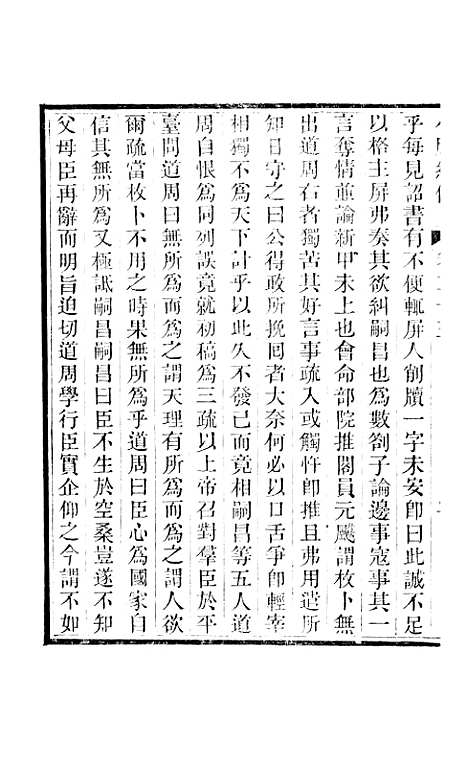 乎每見詔書有不便輒屏人削牘一字未安即曰此誠不足
以格主屏弗奏其欲糾嗣昌也爲數劄子論邊事寇事其一
言奪情並論新甲未上也會命部院推閣員元飈謂枚卜無
出道周右者獨苦其好言事疏入或觸忤即推且弗用遣所
知日守之曰公得政所挽回者大奈何必以口舌爭即輕宰
相獨不爲天下計乎以此久不發已而竟相嗣昌等五人道
周自恨爲同列誤竟就初稿爲三疏以上帝召對羣臣於平
臺問道周曰無所爲而爲之謂天理有所爲而爲之謂人欲
爾疏當枚卜不用之時果無所爲乎道周曰臣心爲國家自
信其無所爲又極詆嗣昌嗣昌曰臣不生於空桑豈遂不知
父母臣再辭而明旨迫切道周學行臣實企仰之今謂不如